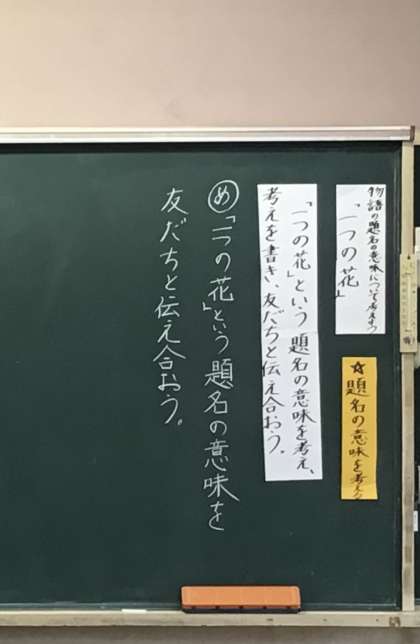 物語の題名の意味について考えよう
「一つの花」
☆題名の意味を考える
「一つの花」という題名の意味を考え、
考えを書き、友だちと伝え合おう。
め「一つの花」という題名の意味を
友だちと伝え合おう。